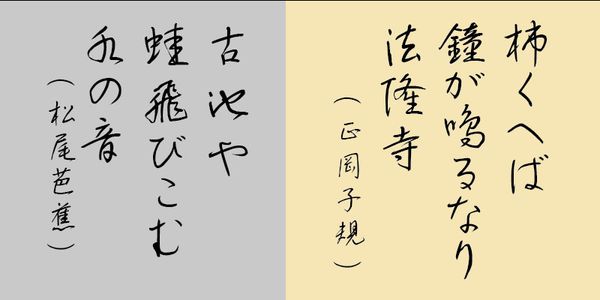 柿くへば
鐘が鳴るなり
法隆寺
（正岡子規）
古池や
蛙飛びこむ
水の音
（松尾芭蕉）